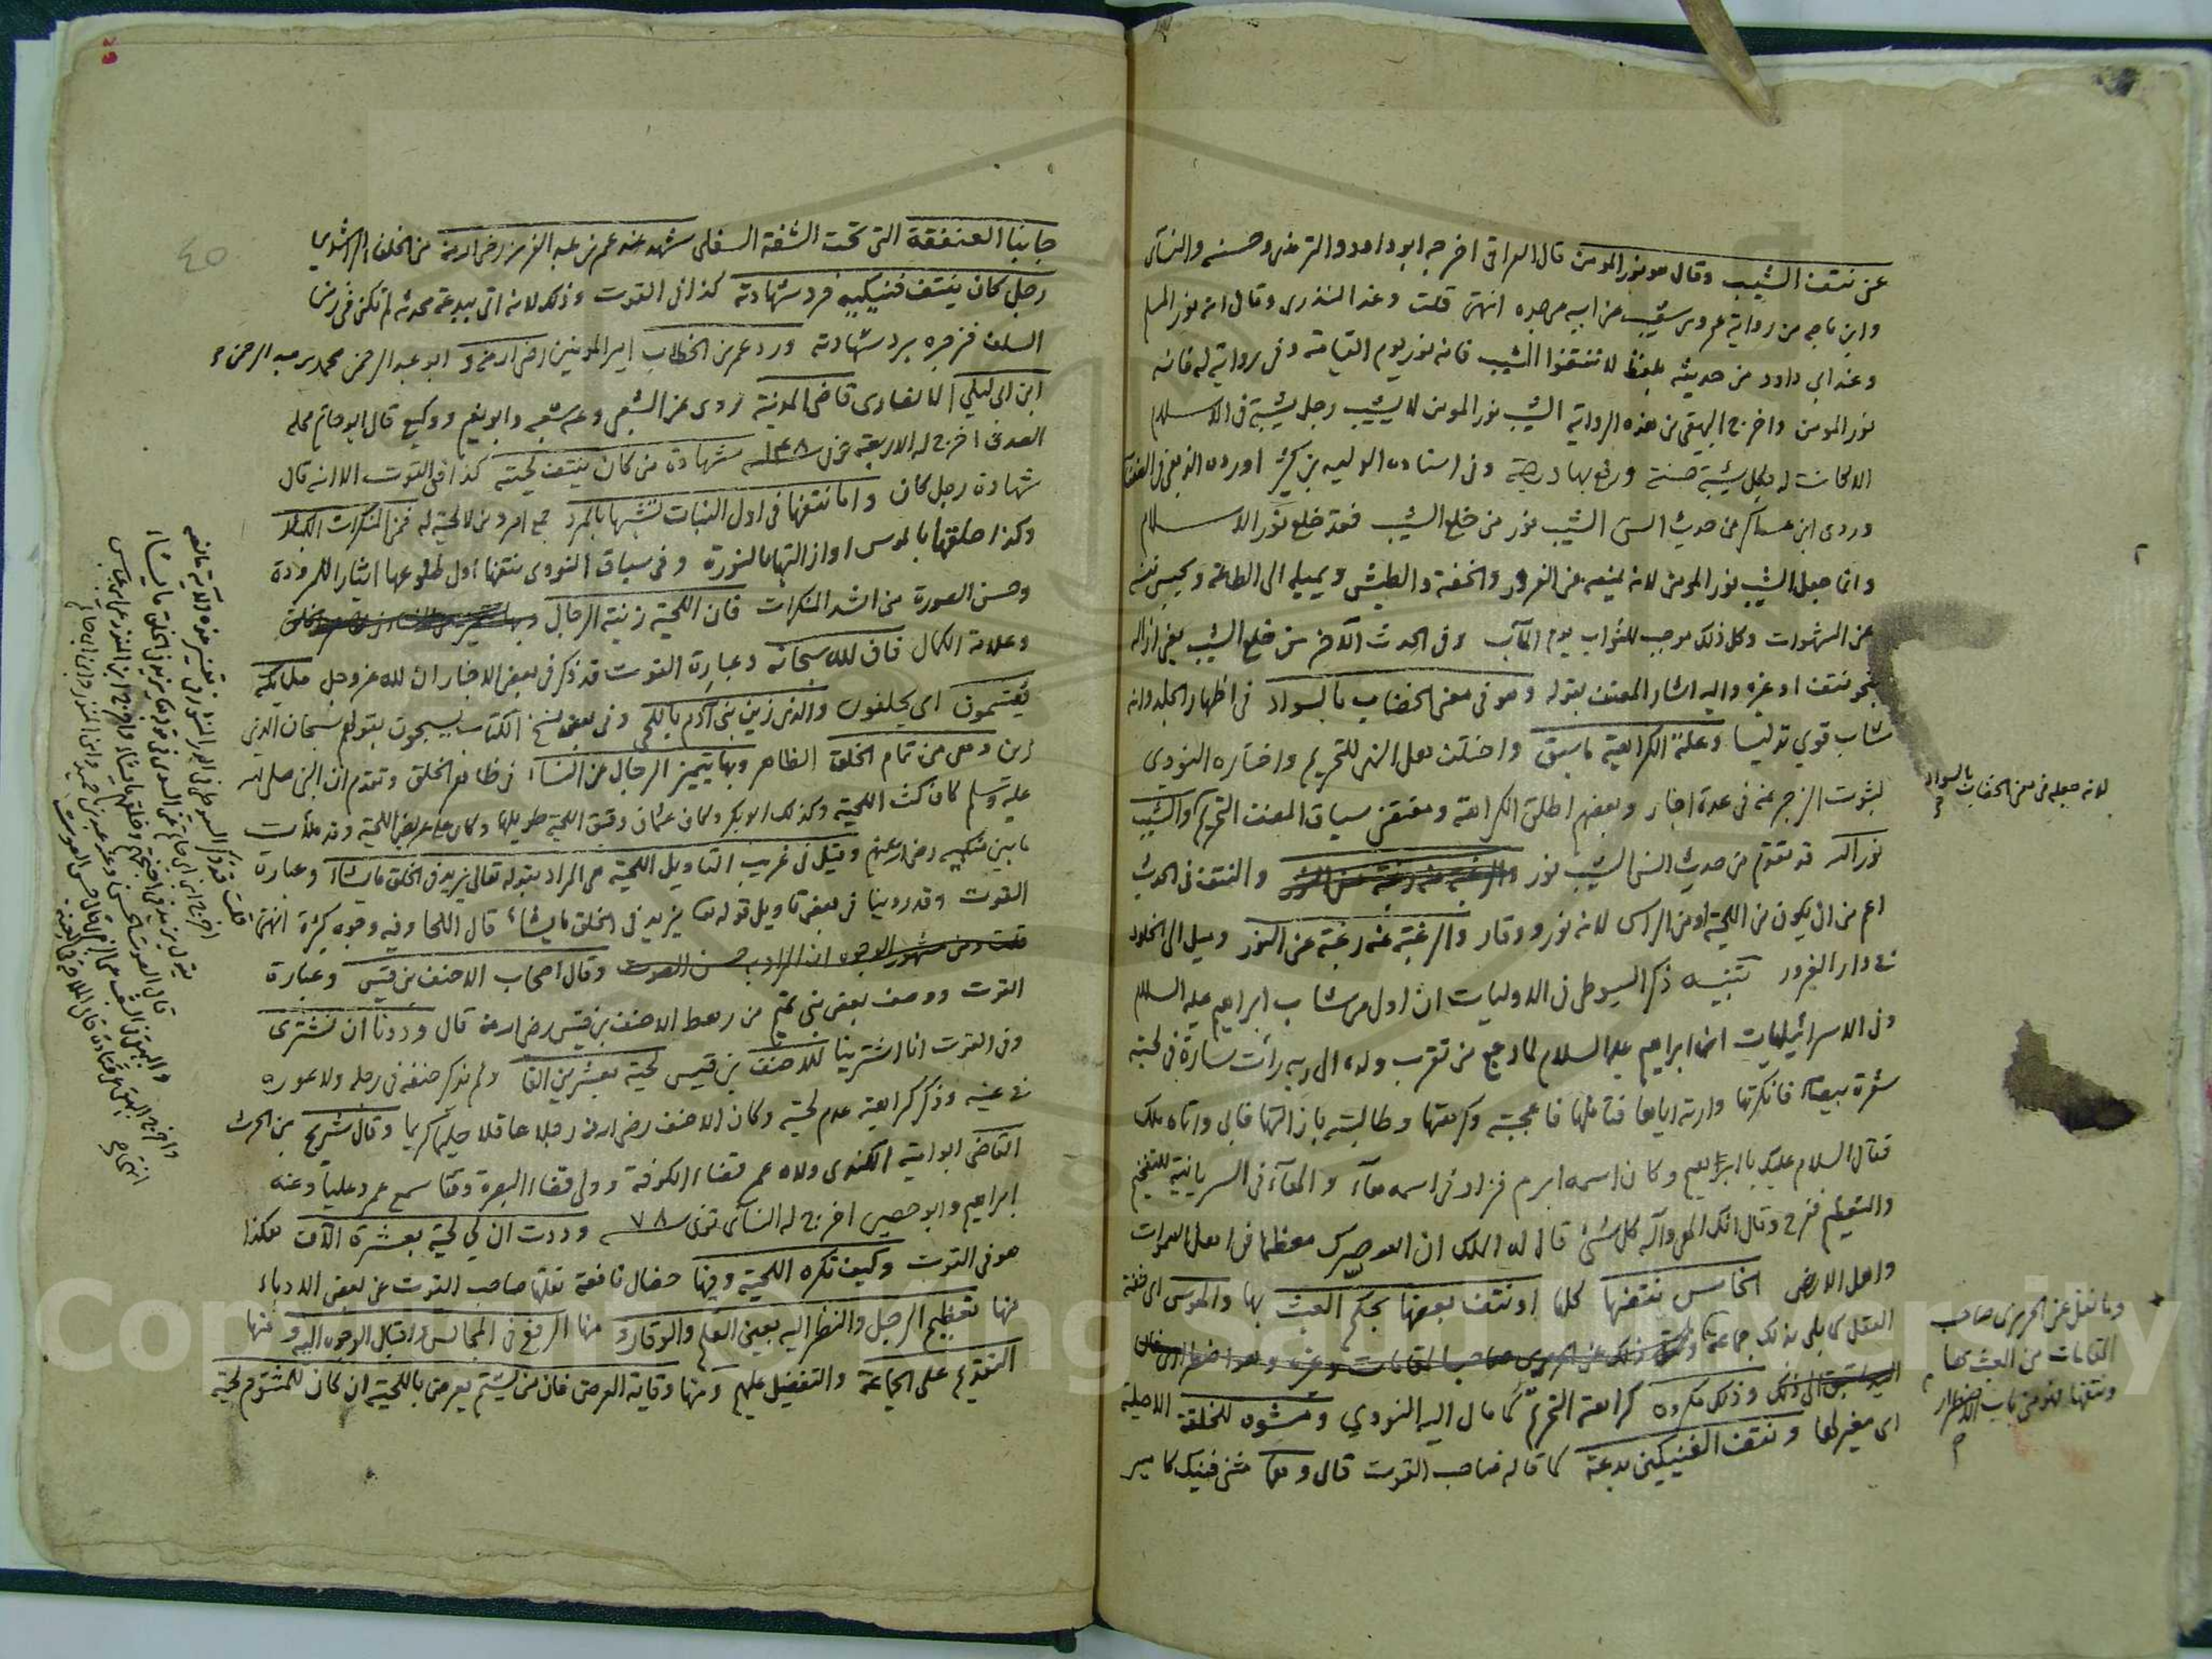 عن نتف الشيب وقال هو نور المومن قال العراقى اخرجه ابو داود والترمذى وحسنه والنسآى
وابن ماجه من رواية عمرو بن شعيب عن ابيه عن جده انتهى قلت وعند المنذرى وقال انه نور المسلم
وعند ابى داود من حديثه بلفظ لا تنتفوا الشيب فانه نور يوم القيامة وفى رواية له فانه
نور المومن واخرج البيهقى من هذه الرواية الشيب نور المومن لا يشيب رجل شيبة فى الاسلام
الا كانت له بكل شيبة حسنة ورفع بها درجة وفى اسناده الوليد بن كثير اورده الذهبى فى الضعفا
وروى ابن عساكر من حديث انس الشيب نور من خلع الشيب فقد خلع نور الاسلام
وانما جعل الشيب نور المومن لانه يمنعه عن الغرور والخفة والطيش ويميله الى الطاعة ويحبس نفسه
عن الشهوات وكل ذلك موجب للثواب يوم المآب وفى الحديث الآخر من خلع الشيب يعنى ازاله
بنحو نتف او غيره واليه اشار المصنف بقوله وهو فى معنى الخضاب بالسواد فى اظهار الجلد وانه
شاب قوي تدليسا وعلة الكراهية ما سبق واختلف هل النهى للتحريم واختاره النووى
لثبوت الزجر عنه فى عدة اخبار وبعضهم اطلق الكراهة ومقتضى سياق المصنف التحريم والشيب
نور الله قد تقدم من حديث انس الشيب نور والرغبة عنه رغبة عن النور والنتف فى الحديث
اعم من ان يكون من اللحية او من الراس لانه نور ووقار والرغبة عنه رغبة عن النور وميل الى الخلود
فى دار الغرور تنبيه ذكر السيوطى فى الاوليات ان اول من شاب ابراهيم عليه السلام
وفى الاسرائيليات ان ابراهيم عليه السلام لما رجع من تقرب ولده الى ربه رأت سارة فى لحيته
شعرة بيضاء فانكرتها وارته اياها فتاملها فاعجبته وكرهتها وطالبته بازالتها فابى واتاه ملك
فقال السلام عليك يا ابراهيم وكان اسمه ابرم فزاد فى اسمه هآء والهآء فى السريانية للتفخيم
والتعظيم ففرح وقال اشكر الهى واله كل شئ قال له الملك ان الله صيرك معظما فى اهل السموات
واهل الارض الخامس نتفها كلها او نتف بعضها بحكم العبث بها والهوس اى خفة
العقل كما بلى بذلك جماعة ذلك عن الحريرى صاحب المقامات وغيره
وذلك مكروه كراهة التحريم كما مال اليه النووي ومشوه للخلقة الاصلية
اى مغير لها ونتف الفنيكين بدعة كما قاله صاحب القوت قال وهما مثنى فنيك كامير
لانه جعله فى معنى الخضاب بالسواد
وما نقل عن الحريرى صاحب
المقامات من العبث بها
ونتفها فهو من باب الاضطرار
٤٥
جانبا العنفقة التى تحت الشفة السفلى شهد عند عمر بن عبد العزيز رضى الله عنه من الخلفاء الراشدين
رجل كان ينتف فنيكيه فرد شهادته كذا فى القوت وذلك لانه اتى ببدعة محدثه لم تكن فى زمن
السلف فزجره برد شهادته ورد عمر بن الخطاب امير المومنين رضى الله عنه و ابو عبد الرحمن محمد بن عبد الرحمن
ابن ابى ليلى الانصارى قاضى المدينة روى عن الشعبى وعنه شعبه وابو نعيم ووكيع قال ابو حاتم محله
الصدق اخرج له الاربعة توفى ١٤٨ شهادة من كان ينتف لحيته كذا فى القوت الا انه قال
شهادة رجل كان واما نتفها فى اول النبات تشبها بالمرد جمع امرد من لا لحية له فمن المنكرات الكبار
وكذا حلقها بالموس او ازالتها بالنورة وفى سياق النووى نتفها اول طلوعها ايثارا للمرودة
وحسن الصورة من اشد المنكرات فان اللحية زينة الرجال
وعلامة الكمال فان لله سبحانه وعبارة القوت قد ذكر فى بعض الاخبار ان لله عز وجل ملائكة
يقسمون اى يحلفون والذى زين بنى آدم باللحى وفى بعض نسخ الكتاب يسبحون بقولهم سبحان الذى
زين وهى من تمام الخلق الظاهر وبها يتميز الرجال من النساء فى ظاهر الخلق وتقدم ان النبى صلى الله
عليه وسلم كان كث اللحية وكذلك ابو بكر وكان عثمان رقيق اللحية طويلها وكان على عريض اللحية وقد ملأت
ما بين منكبيه رضى الله عنهم وقيل فى غريب التاويل اللحية هى المراد بقوله تعالى يزيد فى الخلق ما يشاء وعبارة
القوت وقد روينا فى بعض تاويل قوله تعا يزيد فى الخلق ما يشاء قال اللحا وفيه وجوه كثيرة انتهى
قلت ومن مشهور الوجوه ان المراد به حسن الصوت وقال اصحاب الاحنف بن قيس وعبارة
القوت ووصف بعض بنى تميم من رهط الاحنف بن قيس رضى الله عنه قال وددنا ان نشترى
وفى القوت انا اشترينا للاحنف بن قيس لحية بعشرين الفا ولم يذكر حنفه فى رجله ولا عوره
فى عينه وذكر كراهية عدم لحيته وكان الاحنف رضى الله عنه رجلا عاقلا حليما كريما وقال شريح بن الحرث
القاضى ابو امية الكندى ولاه عمر قضاء الكوفة وولى قضاء البصرة وقتا سمع عمر وعلياً وعنه
ابراهيم وابو حصين اخرج له النسآى توفى ٧٨ وددت ان لى لحية بعشرة آلاف هكذا
هو فى القوت وكيف تكره اللحية وفيها خصال نافعة نقلها صاحب القوت عن بعض الادباء
منها تعظيم الرجل والنظر اليه بعين العلم والوقار و منها الرفع فى المجالس واقبال الوجوه اليه و منها
التقديم على الجماعة والتفضيل عليهم ومنها وقاية العرض فان من يشتم يعرض باللحية ان كان للمشتوم لحية